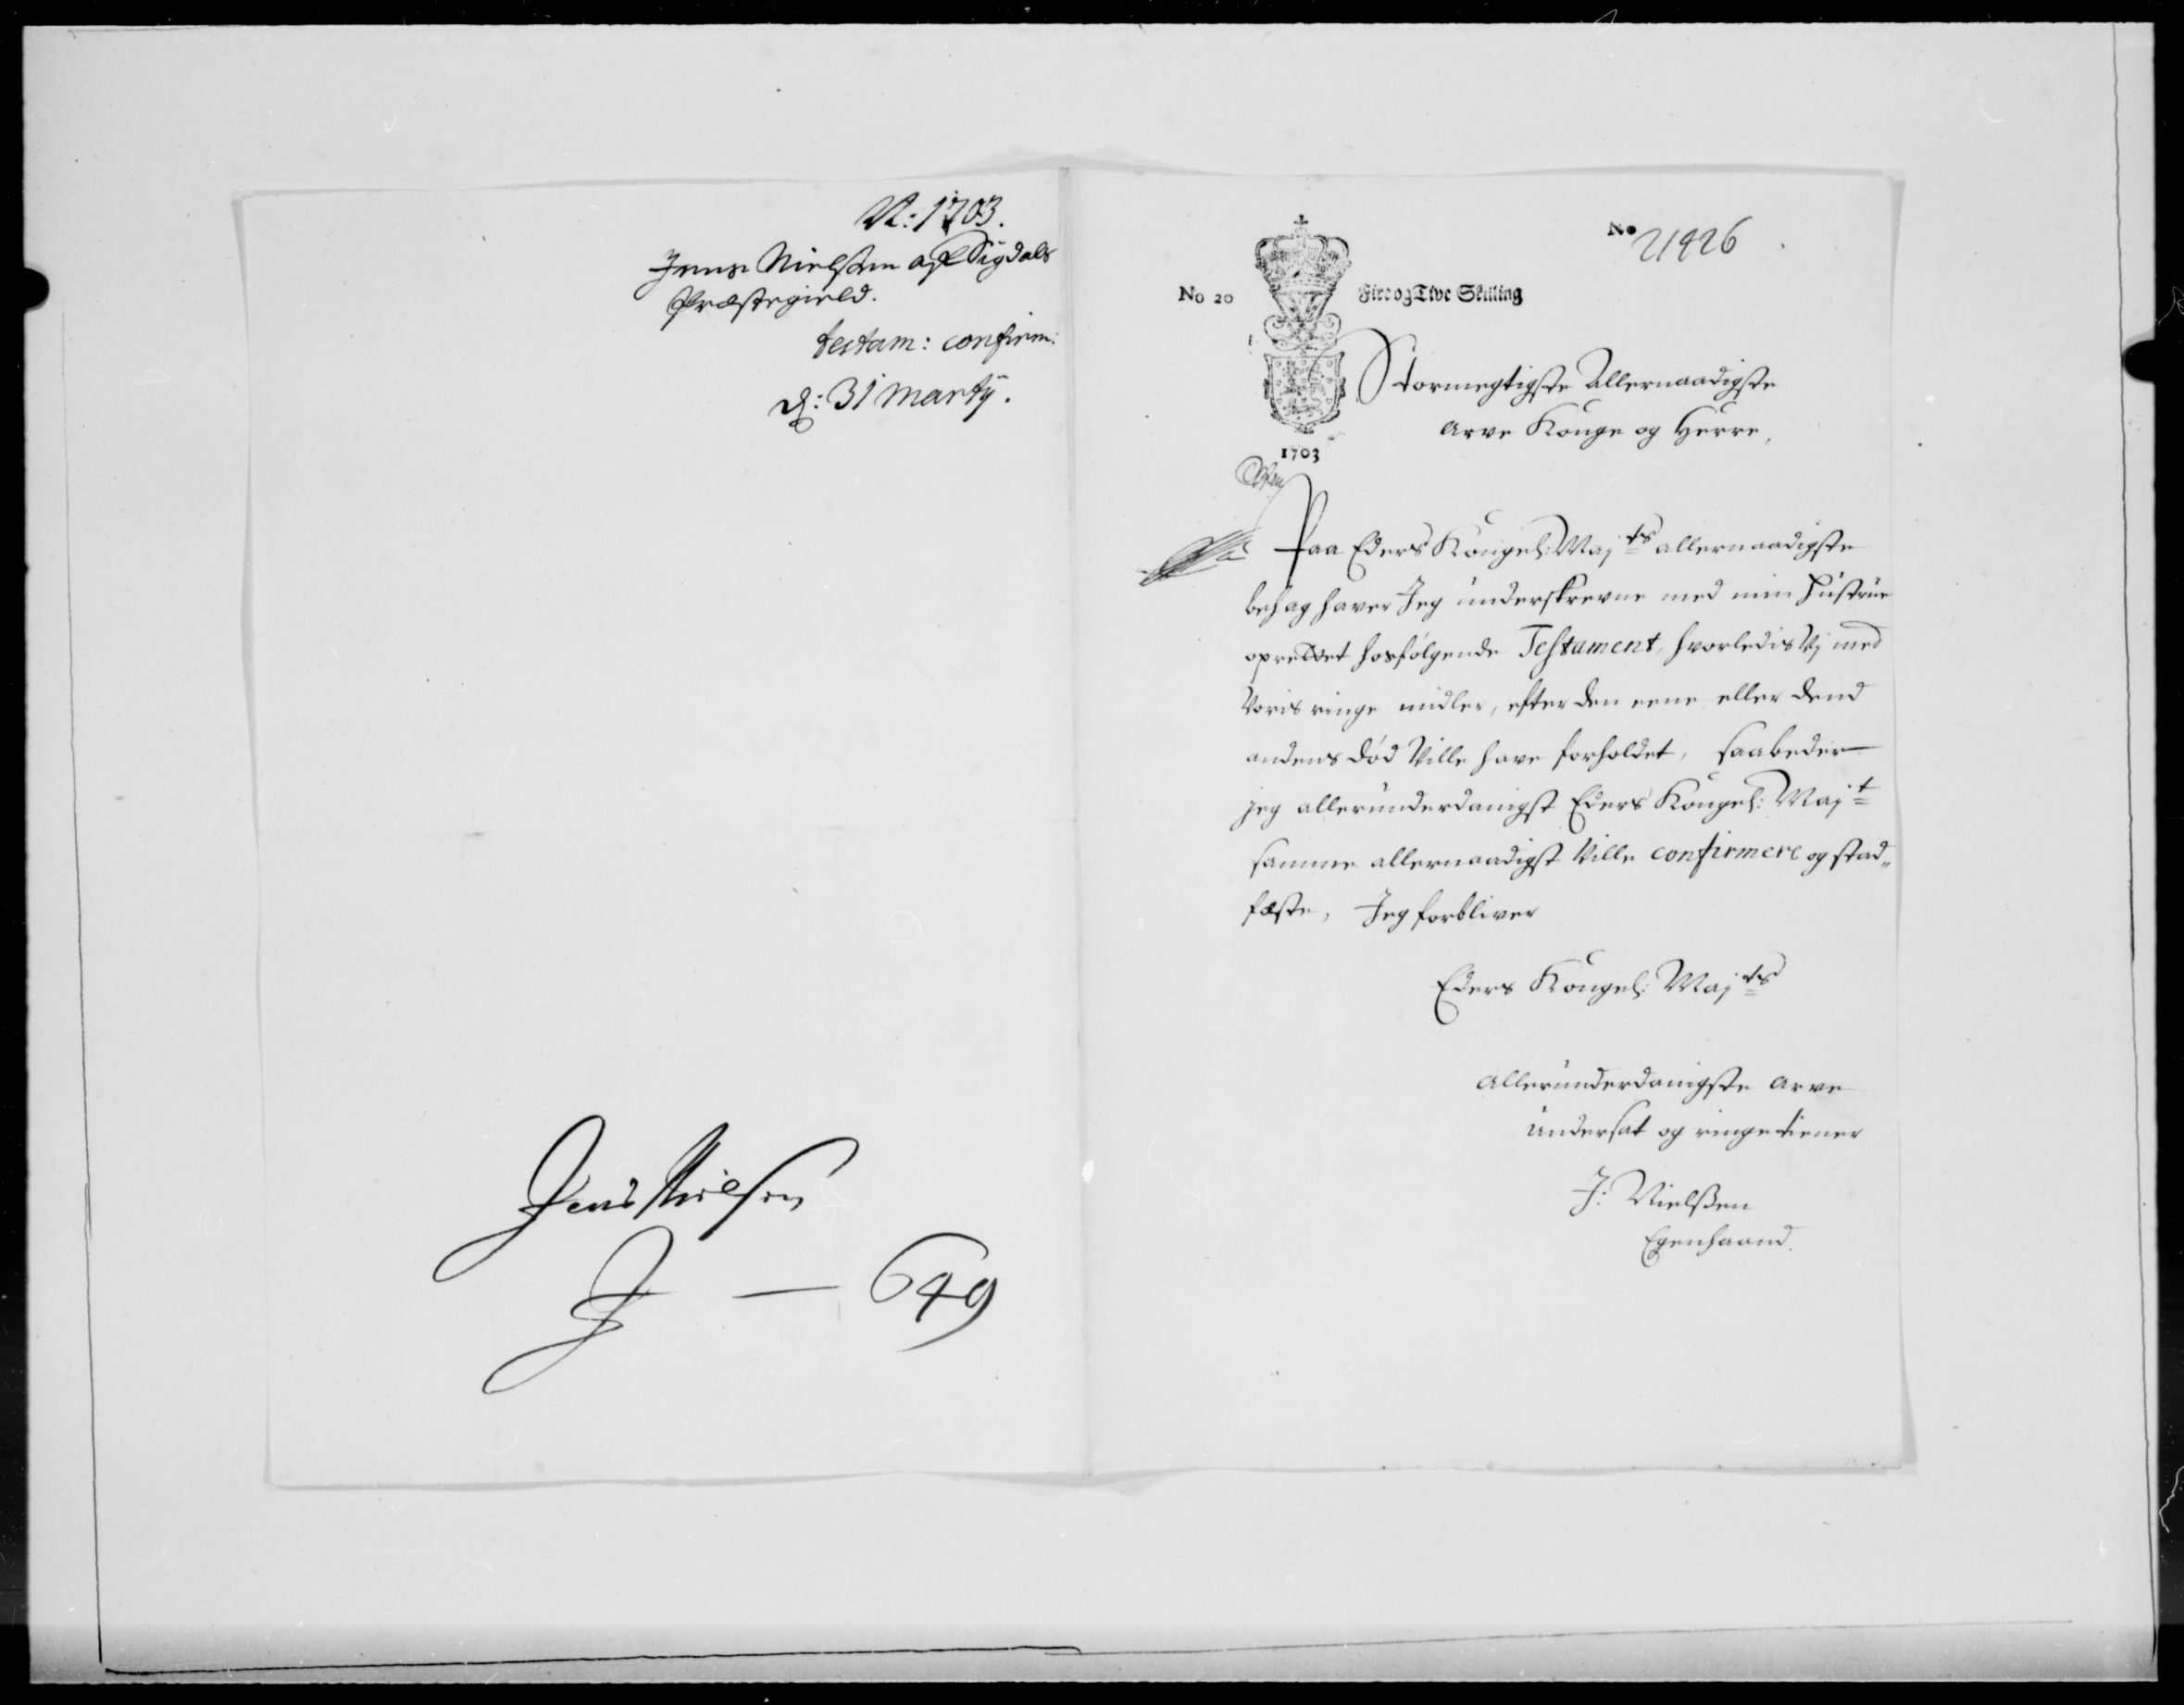 N: 1703.
Jens Nielsen af Sigdals
Præstegield.
testam: confirm:
d: 31 Martij.
Jens Nielsen
J — 649
No 21926
No 20 Fire og Tive Skilling
1703
Stormegtigste Allernaadigste
Arve Konge og Herre,
Paa Eders Kongel: Majts allernaadigste
behag haver Jeg underskrevne med min hustrue
oprettet hosfølgende Testament, hvorledis Vj med
Voris ringe midler, efter den eene eller dend
andens død Ville have forholdet, saa beder
jeg allerunderdanigst Eders Kongel: Majt
samme allernaadigst Ville confirmere og stad„
fæste, Jeg forbliver
Eders Kongel: Majts
allerunderdanigste arve
undersat og ringe tiener
J: Nielßen
Egenhaand.